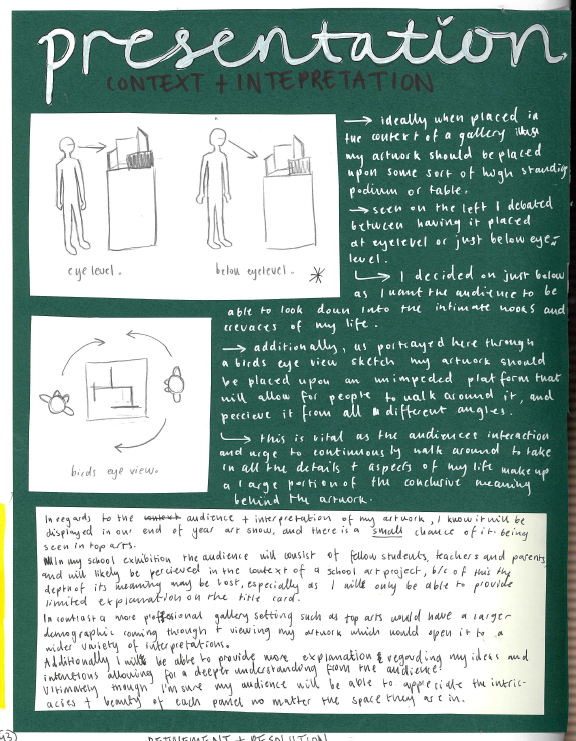 presentation
CONTEXT + INTEPRETATION
→ ideally when placed in
the context of a gallery
my artwork should be placed
upon some sort of high standing
podium or table.
→ seen on the left I debated
between having it placed
at eyelevel or just below eye-
level.
↳ I decided on just below
as I want the audience to be
able to look down into the intimate nooks and
crevaces of my life.
eye level.
below eyelevel.
→ additionally, as portrayed here through
a birds eye view sketch my artwork should
be placed upon an unimpeded platform that
will allow for people to walk around it, and
percieve it from all different angles.
↳ this is vital as the audiences interaction
and urge to continuously walk around to take
in all the details + aspects of my life make up
a large portion of the conclusive meaning
behind the artwork.
birds eye view.
In regards to the context audience + interpretation of my artwork, I know it will be
displayed in our end of year art show, and there is a small chance of it being
seen in top arts.
In my school exhibition the audience will consist of fellow students, teachers and parents
and will likely be percieved in the context of a school art project, b/c of this the
depth of its meaning may be lost, especially as I will only be able to provide
limited explanation on the title card.
In contrast a more professional gallery setting such as top arts would have a larger
demographic coming through + viewing my artwork which would open it to a
wider variety of interpretations.
Additionally I will be able to provide more explanation regarding my ideas and
intentions allowing for a deeper understanding from the audience.
Ultimately though I'm sure my audience will be able to appreciate the intric-
acies + beauty of each panel no matter the space they are in.
REFINEMENT + RESOLUTION